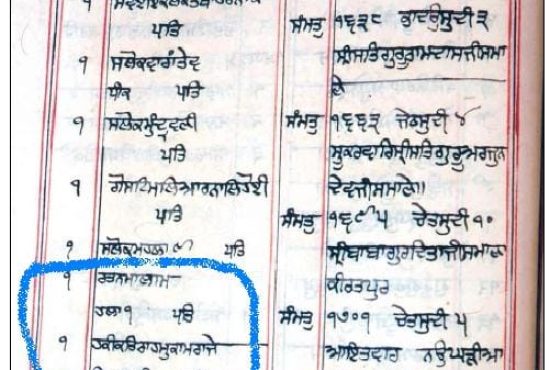 ਪਤਿ
੧ ਸਲੋਕਵਾਰਾਂਤੇਵ
ਧੀਕ ਪਤਿ
੧ ਸਲੋਕਮੁੰਦ੍ਰਵਣੀ
ਪਤਿ
੧ ਗੋਸਟਿਮਲਿਆਰਨਾਲਿਹੋਈ
ਪਤਿ
੧ ਸਲੋਕਮਹਲਾ ੯ ਪਤਿ
੧ ਰਤਨਮਾਲਾਮ
ਹਲਾ੧ ਪਤਿ
੧ ਹਕੀਕਤਿਰਾਹਮੁਕਾਮਰਾਜੇ
ਸੰਮਤੁ ੧੬੩੮ ਭਾਦਉਸੁਦੀ ੩
ਸ੍ਰੀਸਤਿਗੁਰੂਰਾਮਦਾਸਜੀਸਮਾ
ਣੇ
ਸੰਮਤੁ ੧੬੬੩ ਜੇਠਸੁਦੀ ੪
ਸੁਕਰਵਾਰਿਸ੍ਰੀਸਤਿਗੁਰੂਅਰਜੁਨ
ਦੇਵਜੀਸਮਾਣੇ॥
ਸੰਮਤੁ ੧੬੯੫ ਚੇਤਸੁਦੀ ੧੦
ਸ੍ਰੀਬਾਬਾਗੁਰਦਿਤਾਜੀਸਮਾਣਾ
ਕੀਰਤਪੁਰ
ਸੰਮਤੁ ੧੭੦੧ ਚੇਤਸੁਦੀ ੫
ਆਇਤਵਾਰ ਨਉਘੜੀਆ